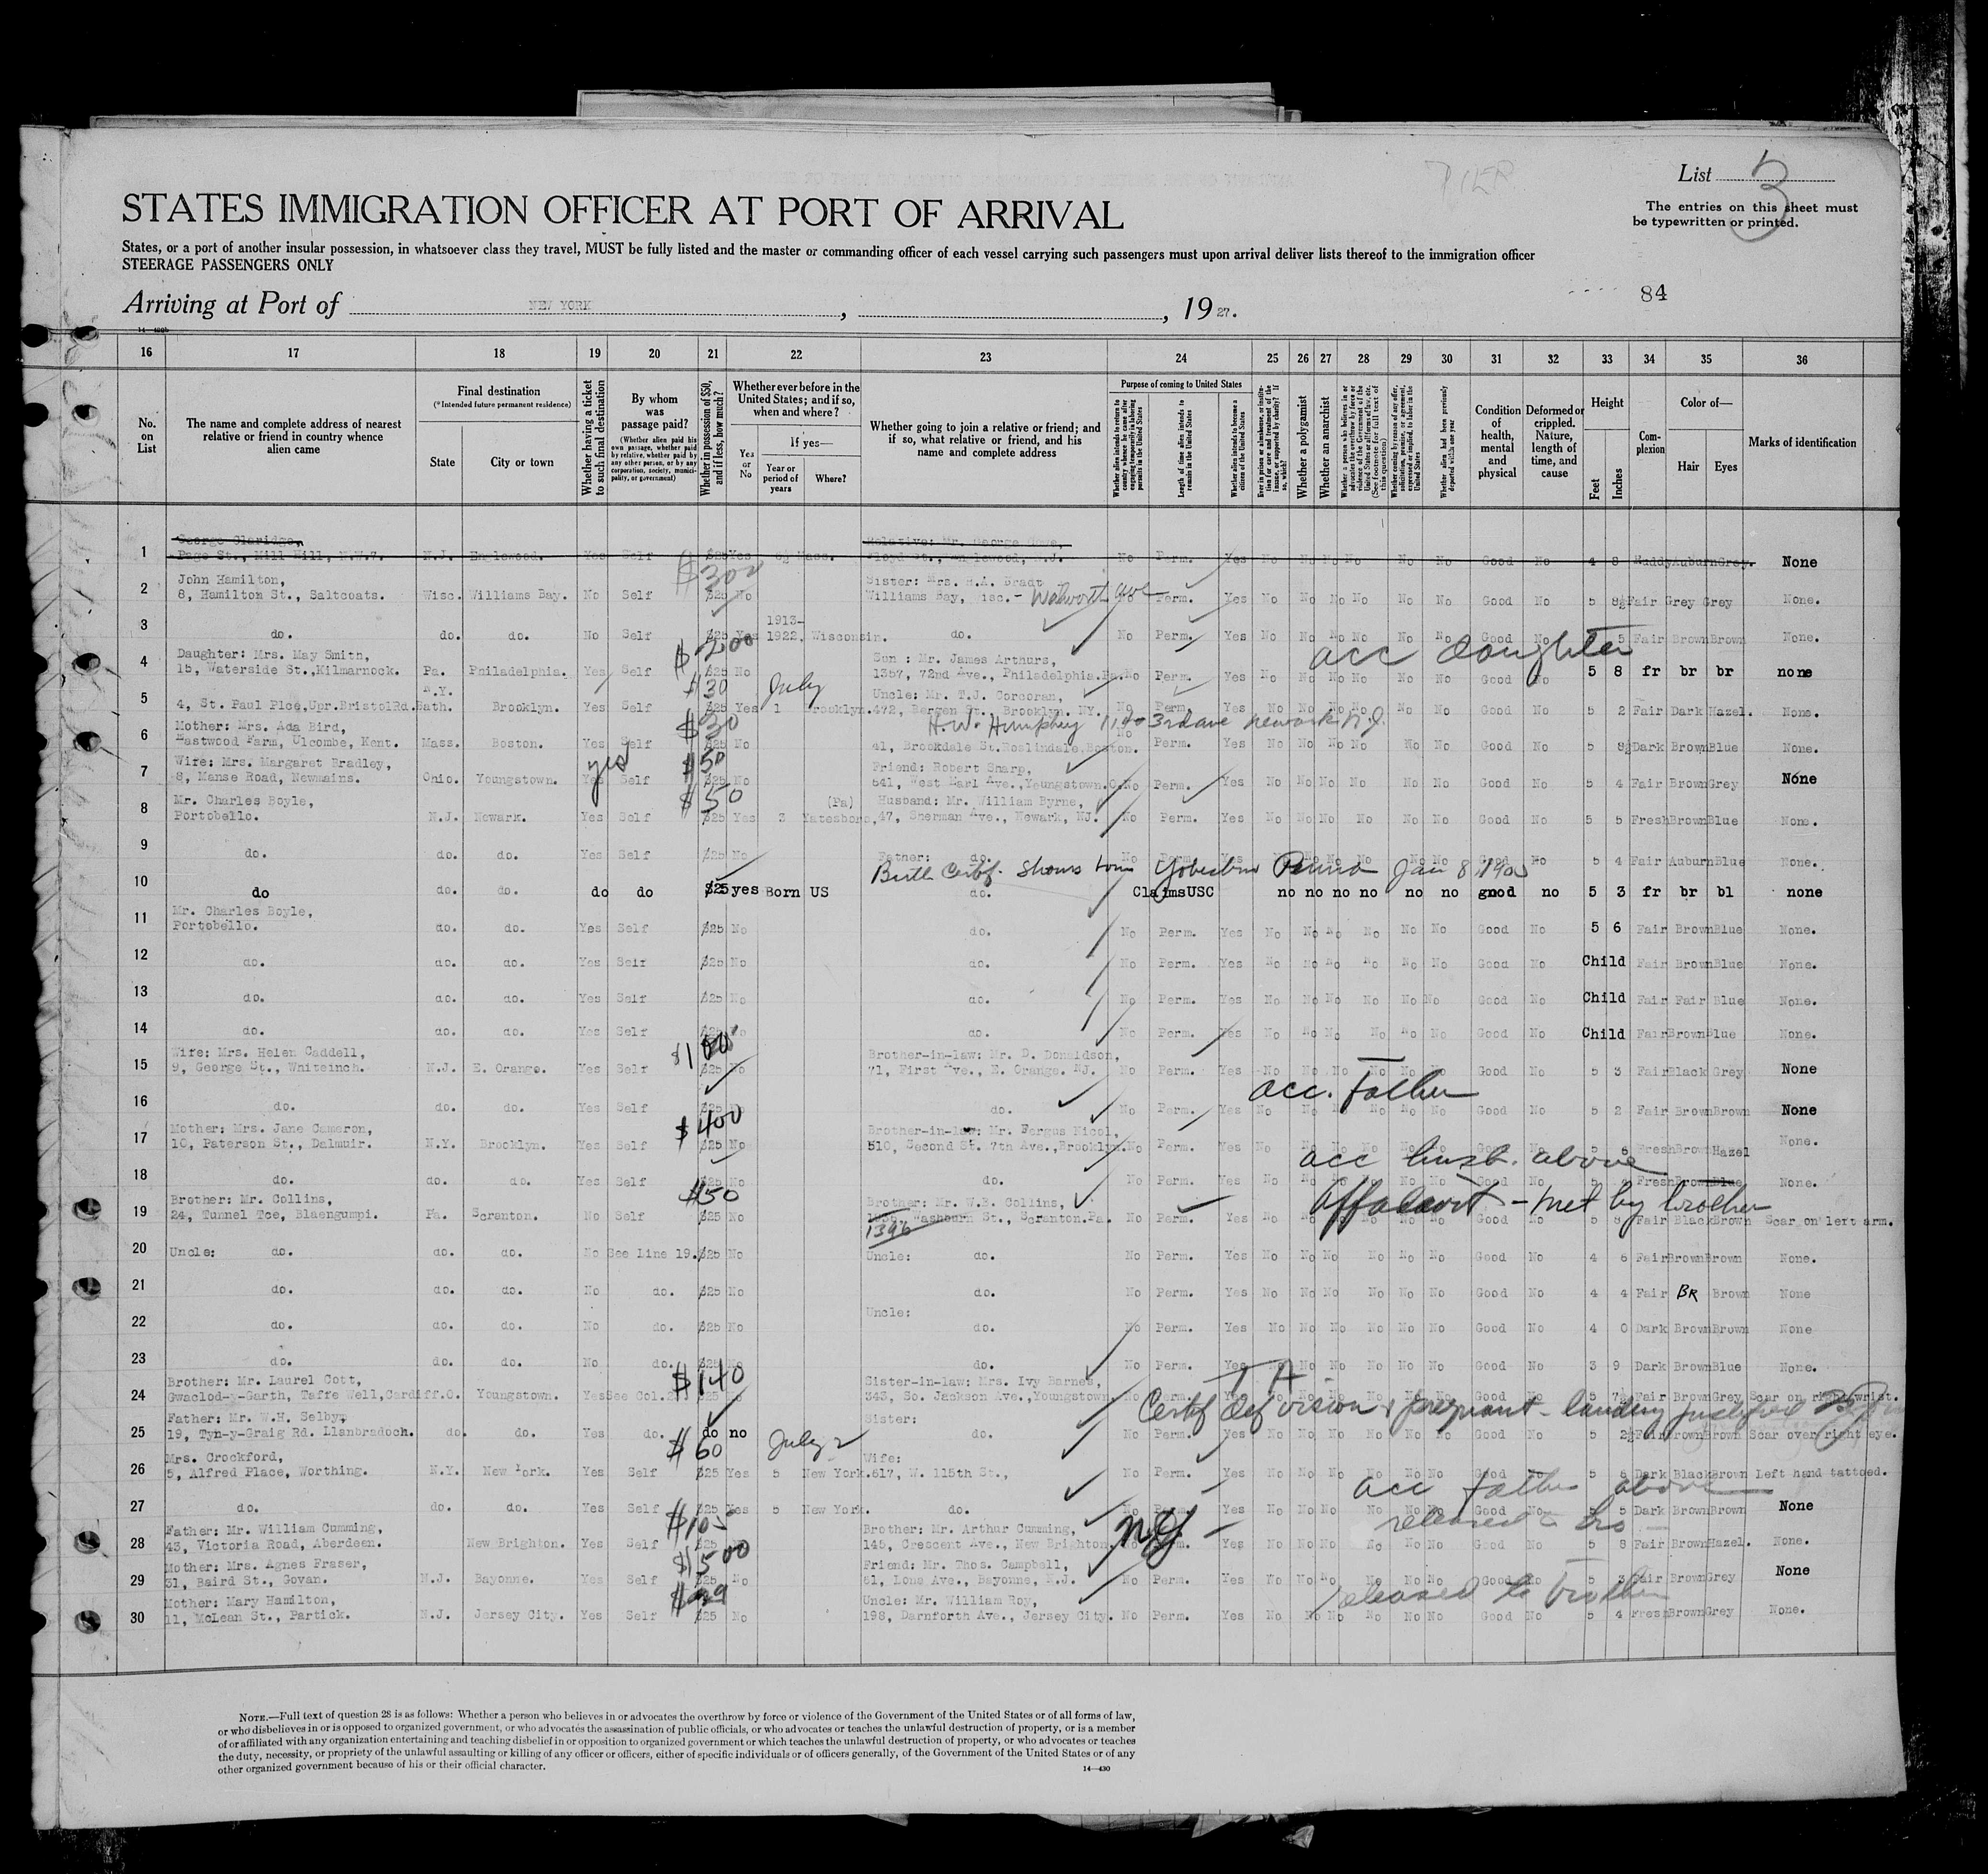 PIER
List 3
STATES IMMIGRATION OFFICER AT PORT OF ARRIVAL
The entries on this sheet must
be typewritten or printed.
States, or a port of another insular possession, in whatsoever class they travel, MUST be fully listed and the master or commanding officer of each vessel carrying such passengers must upon arrival deliver lists thereof to the immigration officer
STEERAGE PASSENGERS ONLY
84
Arriving at Port of NEW YORK, , 1927.
16 17 18 19 20 21 22 23 24 25 26 27 28 29 30 31 32 33 34 35 36
No. on List
The name and complete address of nearest relative or friend in country whence alien came
Final destination
(*Intended future permanent residence)
State City or town
Whether having a ticket to such final destination
By whom was passage paid?
(Whether alien paid his own passage, whether paid by relative, whether paid by any other person, or by any corporation, society, municipality, or government)
Whether in possession of $50, and if less, how much?
Whether ever before in the United States; and if so, when and where?
Yes or No
If yes—
Year or period of years
Where?
Whether going to join a relative or friend; and if so, what relative or friend, and his name and complete address
Purpose of coming to United States
Length of time alien intends to remain in the United States
Whether alien intends to become a citizen of the United States
Whether a polygamist
Whether an anarchist
Condition of health, mental and physical
Deformed or crippled. Nature, length of time, and cause
Height
Feet Inches
Complexion
Color of—
Hair Eyes
Marks of identification
1 George Claridge,
Page St., Mill Hill, N.W.7. N.J. Englewood. Yes Self $25 Yes Mass. No Perm. Yes No No No No No No Good No 4 8 Ruddy Auburn Grey. None
2 John Hamilton, $300 Sister: Mrs. H.A. Bradt
8, Hamilton St., Saltcoats. Wisc. Williams Bay. No Self $25 No Williams Bay, Wisc. - Walworth ave No Perm. Yes No No No No No No Good No 5 8½ Fair Grey Grey None.
3 do. do. do. No Self $25 Yes 1913-1922. Wisconsin. do. No Perm. Yes No No No No No No Good No 5 Fair Brown Brown None.
acc daughter
4 Daughter: Mrs. May Smith, Son : Mr. James Arthurs,
15, Waterside St., Kilmarnock. Pa. Philadelphia. Yes Self $25 No 1357, 72nd Ave., Philadelphia.Pa. No Perm. Yes No No No No No No Good No 5 8 fr br br none
5 N.Y. $30 July Uncle: Mr. T.J. Corcoran,
4, St. Paul Plce, Upr.BristolRd.Bath. Brooklyn. Yes Self $25 Yes 1 Brooklyn. 472, Bergen St., Brooklyn. NY. No Perm. Yes No No No No No No Good No 5 2 Fair Dark Hazel. None.
6 Mother: Mrs. Ada Bird, $30 H.W. Humphry 1140 3rd ave newark N.J.
Eastwood Farm, Ulcombe, Kent. Mass. Boston. Yes Self $25 No 41, Brookdale St.Roslindale,Boston. No Perm. Yes No No No No No No Good No 5 8½ Dark Brown Blue None.
7 Wife: Mrs. Margaret Bradley, yes $50 Friend: Robert Sharp,
8, Manse Road, Newmains. Ohio. Youngstown. Yes Self $25 No 541, West Earl Ave., Youngstown.O. No Perm. Yes No No No No No No Good No 5 4 Fair Brown Grey None
8 Mr. Charles Boyle, $50 (Pa) Husband: Mr. William Byrne,
Portobello. N.J. Newark. Yes Self $25 Yes 3 Yatesboro, 47, Sherman Ave., Newark, NJ. No Perm. Yes No No No No No No Good No 5 5 Fresh Brown Blue None.
9 do. do. do. Yes Self $25 No Father: do. No Perm. Yes No No No No No No Good No 5 4 Fair Auburn Blue None.
Birth Certif. Shows born Penna Jan 8, 1905
10 do do. do. do do $25 yes Born US do. Claims USC no no no no no no good no 5 3 fr br bl none
11 Mr. Charles Boyle,
Portobello. do. do. Yes Self $25 No do. No Perm. Yes No No No No No No Good No 5 6 Fair Brown Blue None.
12 do. do. do. Yes Self $25 No do. No Perm. Yes No No No No No No Good No Child Fair Brown Blue None.
13 do. do. do. Yes Self $25 No do. No Perm. Yes No No No No No No Good No Child Fair Fair Blue None.
14 do. do. do. Yes Self $25 No do. No Perm. Yes No No No No No No Good No Child Fair Brown Blue None.
15 Wife: Mrs. Helen Caddell, $100 Brother-in-law: Mr. D. Donaldson,
9, George St., Whiteinch. N.J. E. Orange. Yes Self $25 No 71, First Ave., E. Orange. NJ. No Perm. Yes No No No No No No Good No 5 3 Fair Black Grey None
acc. Father
16 do. do. do. Yes Self $25 No do. No Perm. Yes No No No No No No Good No 5 2 Fair Brown Brown None
17 Mother: Mrs. Jane Cameron, $400 Brother-in-law: Mr. Fergus Nicol,
10, Paterson St., Dalmuir. N.Y. Brooklyn. Yes Self $25 No 510, Second St. 7th Ave., Brooklyn. No Perm. Yes No No No No No No Good No 5 6 Fresh Brown Hazel None.
acc husb. above
18 do. do. do. Yes Self $25 No do. No Perm. Yes No No No No No No Good No 5 Fresh Brown Blue None.
19 Brother: Mr. Collins, $50 Brother: Mr. W.B. Collins, Affidavit - met by brother
24, Tunnel Tce, Blaengumpi. Pa. Scranton. No Self $25 No 1396 Washburn St., Scranton.Pa. No Perm. Yes No No No No No No Good No 5 8 Fair Black Brown Scar on left arm.
20 Uncle: do. do. do. No See Line 19. $25 No Uncle: do. No Perm. Yes No No No No No No Good No 4 6 Fair Brown Brown None.
21 do. do. do. No do. $25 No do. No Perm. Yes No No No No No No Good No 4 4 Fair BR Brown None
22 do. do. do. No do. $25 No Uncle: do. No Perm. Yes No No No No No No Good No 4 0 Dark Brown Brown None
23 do. do. do. No do. $25 No do. No Perm. Yes No No No No No No Good No 3 9 Dark Brown Blue None.
24 Brother: Mr. Laurel Cott, $140 Sister-in-law: Mrs. Ivy Barnes,
Gwaelod-y-Garth, Taffe Well, Cardiff. O. Youngstown. Yes See Col. $25 No 343, So. Jackson Ave., Youngstown. No Perm. Yes No No No No No No Good No 5 7½ Fair Brown Grey Scar on right wrist.
Certif def vision & pregnant - landing justified
25 Father: Mr. W.H. Selby, Sister:
19, Tyn-y-Graig Rd. Llanbradoch. do. do. Yes do. do no do. No Perm. Yes No No No No No No Good No 5 2½ Fair Brown Brown Scar over right eye.
26 Mrs. Crockford, $60 July 2 Wife:
5, Alfred Place, Worthing. N.Y. New York. Yes Self $25 Yes 5 New York. 617, W. 115th St., No Perm. Yes No No No No No No Good No 5 8 Dark Black Brown Left hand tattoed.
acc father above
27 do. do. do. Yes Self $25 Yes 5 New York. do. No Perm. Yes No No No No No No Good No 5 5 Dark Brown Brown None
28 Father: Mr. William Cumming, $105 Brother: Mr. Arthur Cumming, NY released to bro
43, Victoria Road, Aberdeen. New Brighton. Yes Self $25 145, Crescent Ave., New Brighton Perm. Yes No No No No No No Good No 5 8 Fair Brown Hazel. None.
29 Mother: Mrs. Agnes Fraser, $1500 Friend: Mr. Thos. Campbell,
31, Baird St., Govan. N.J. Bayonne. Yes Self $25 No 61, Lone Ave., Bayonne, N.J. No Perm. Yes No No No No No No Good No 5 3 Fair Brown Grey None
released to brother
30 Mother: Mary Hamilton, Uncle: Mr. William Roy,
11, McLean St., Partick. N.J. Jersey City. Yes Self $25 No 198, Darnforth Ave., Jersey City. No Perm. Yes No No No No No No Good No 5 4 Fresh Brown Grey None.
NOTE.—Full text of question 28 is as follows: Whether a person who believes in or advocates the overthrow by force or violence of the Government of the United States or of all forms of law,
or who disbelieves in or is opposed to organized government, or who advocates the assassination of public officials, or who advocates or teaches the unlawful destruction of property, or is a member
of or affiliated with any organization entertaining and teaching disbelief in or opposition to organized government or which teaches the unlawful destruction of property, or who advocates or teaches
the duty, necessity, or propriety of the unlawful assaulting or killing of any officer or officers, either of specific individuals or of officers generally, of the Government of the United States or of any
other organized government because of his or their official character.
14—430